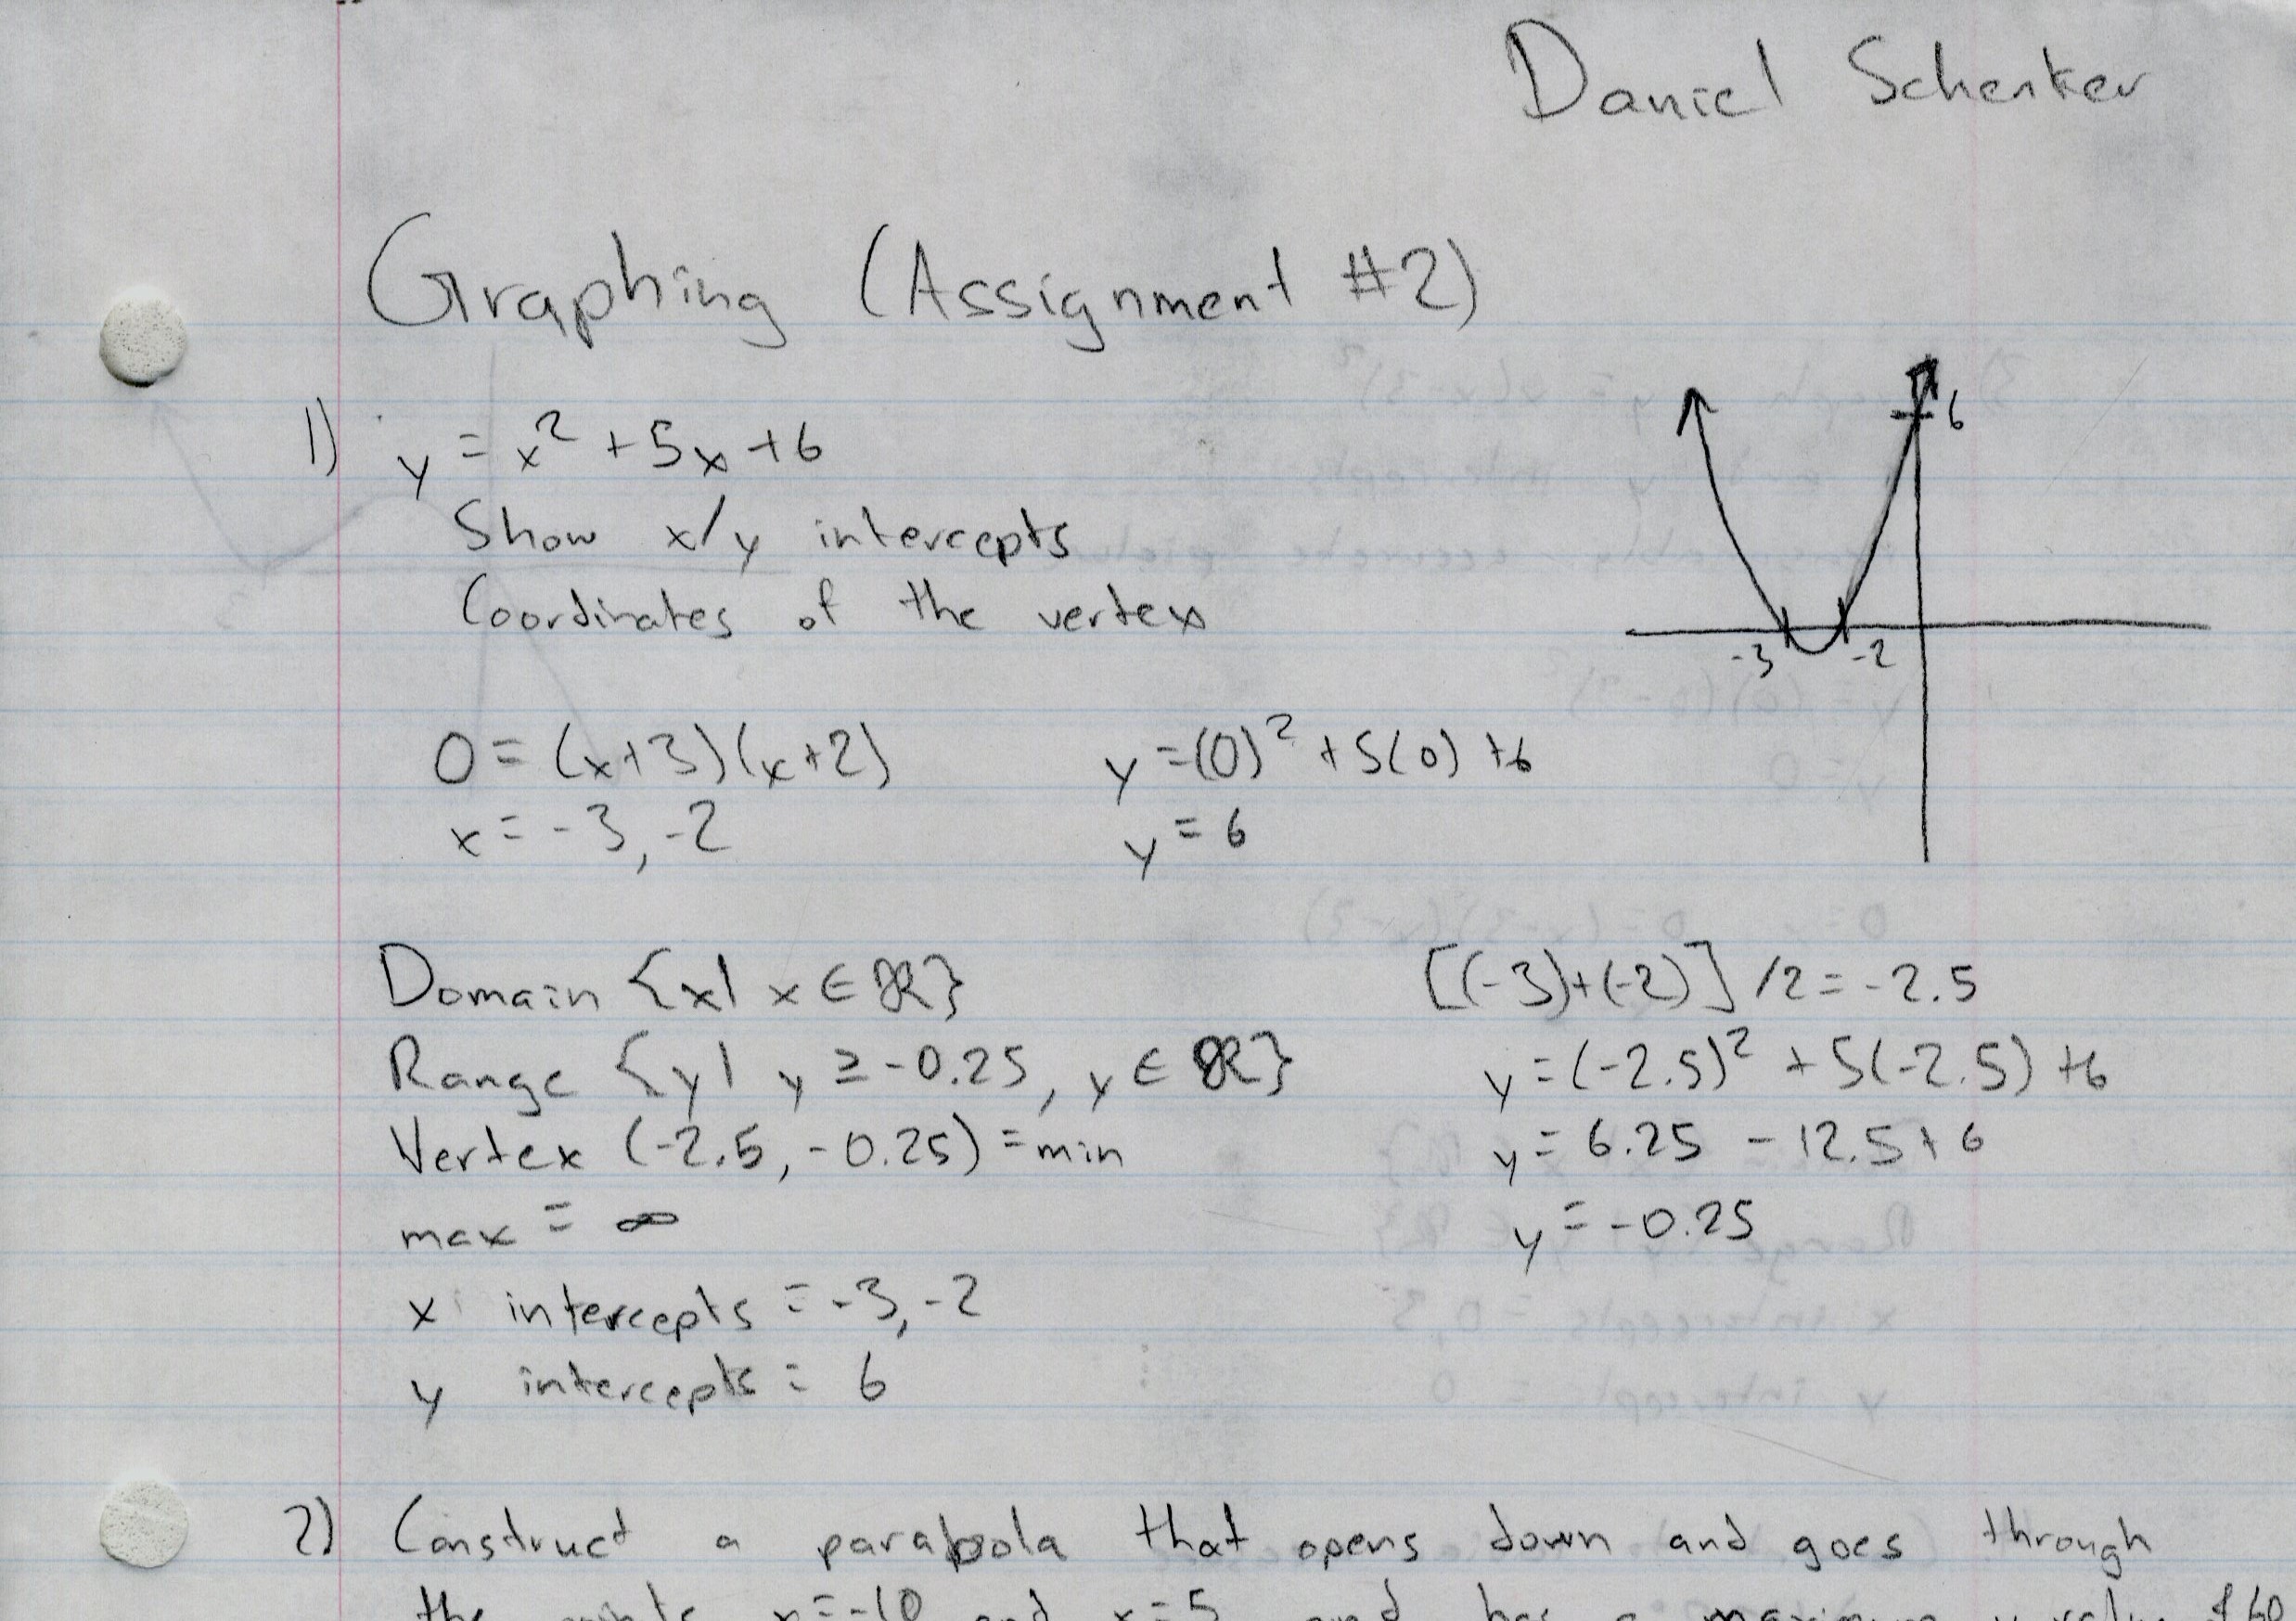 Daniel Schenker
Graphing (Assignment #2)
1) y = x² + 5x + 6
Show x/y intercepts
Coordinates of the vertex
6
-3 -2
0 = (x+3)(x+2)
x = -3, -2
y = (0)² + 5(0) + 6
y = 6
Domain {x| x ∈ ℝ}
Range {y| y ≥ -0.25, y ∈ ℝ}
Vertex (-2.5, -0.25) = min
max = ∞
x intercepts = -3, -2
y intercepts = 6
[(-3)+(-2)] /2 = -2.5
y = (-2.5)² + 5(-2.5) + 6
y = 6.25 - 12.5 + 6
y = -0.25
2) Construct a parabola that opens down and goes through
the points x = -10 and x = 5 and has a maximum y value of 60